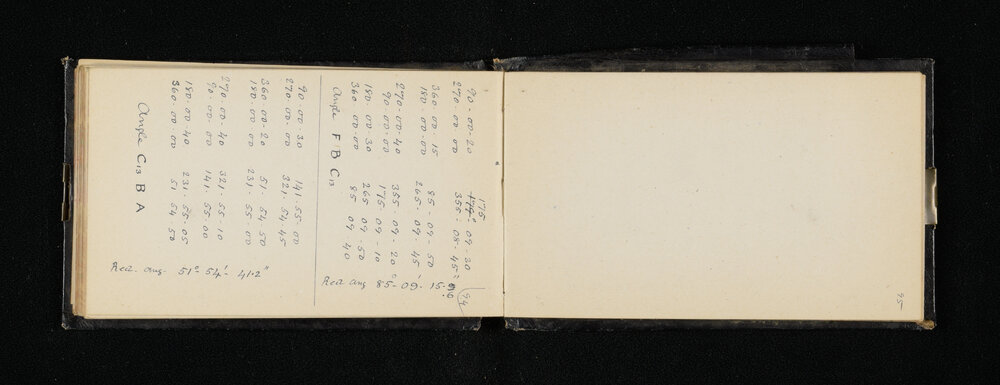 94
175
90-00-20 174°-09-30
270-00 00 355=08-45
360-00-15 85-09-50
180-00-00 265-09-45
270-00-40 355-09-20"
90-00-00 175 09-10
180-00 30 265 09 50
360-00-00 85 09 40
Angle F B C13
Red ang 85-09-15.
90 00 30 141-55-00
270-00-00 321-54-45
360 00-20 51-54 50
180-00 00 231-55-00
270-00-40 321-55-10
90-00-00 141-55-00
180-00-40 231 55-05
360-00-00 51 54 50
Angle C13 B A
Red. ang. 51°-54'-41.2"
95